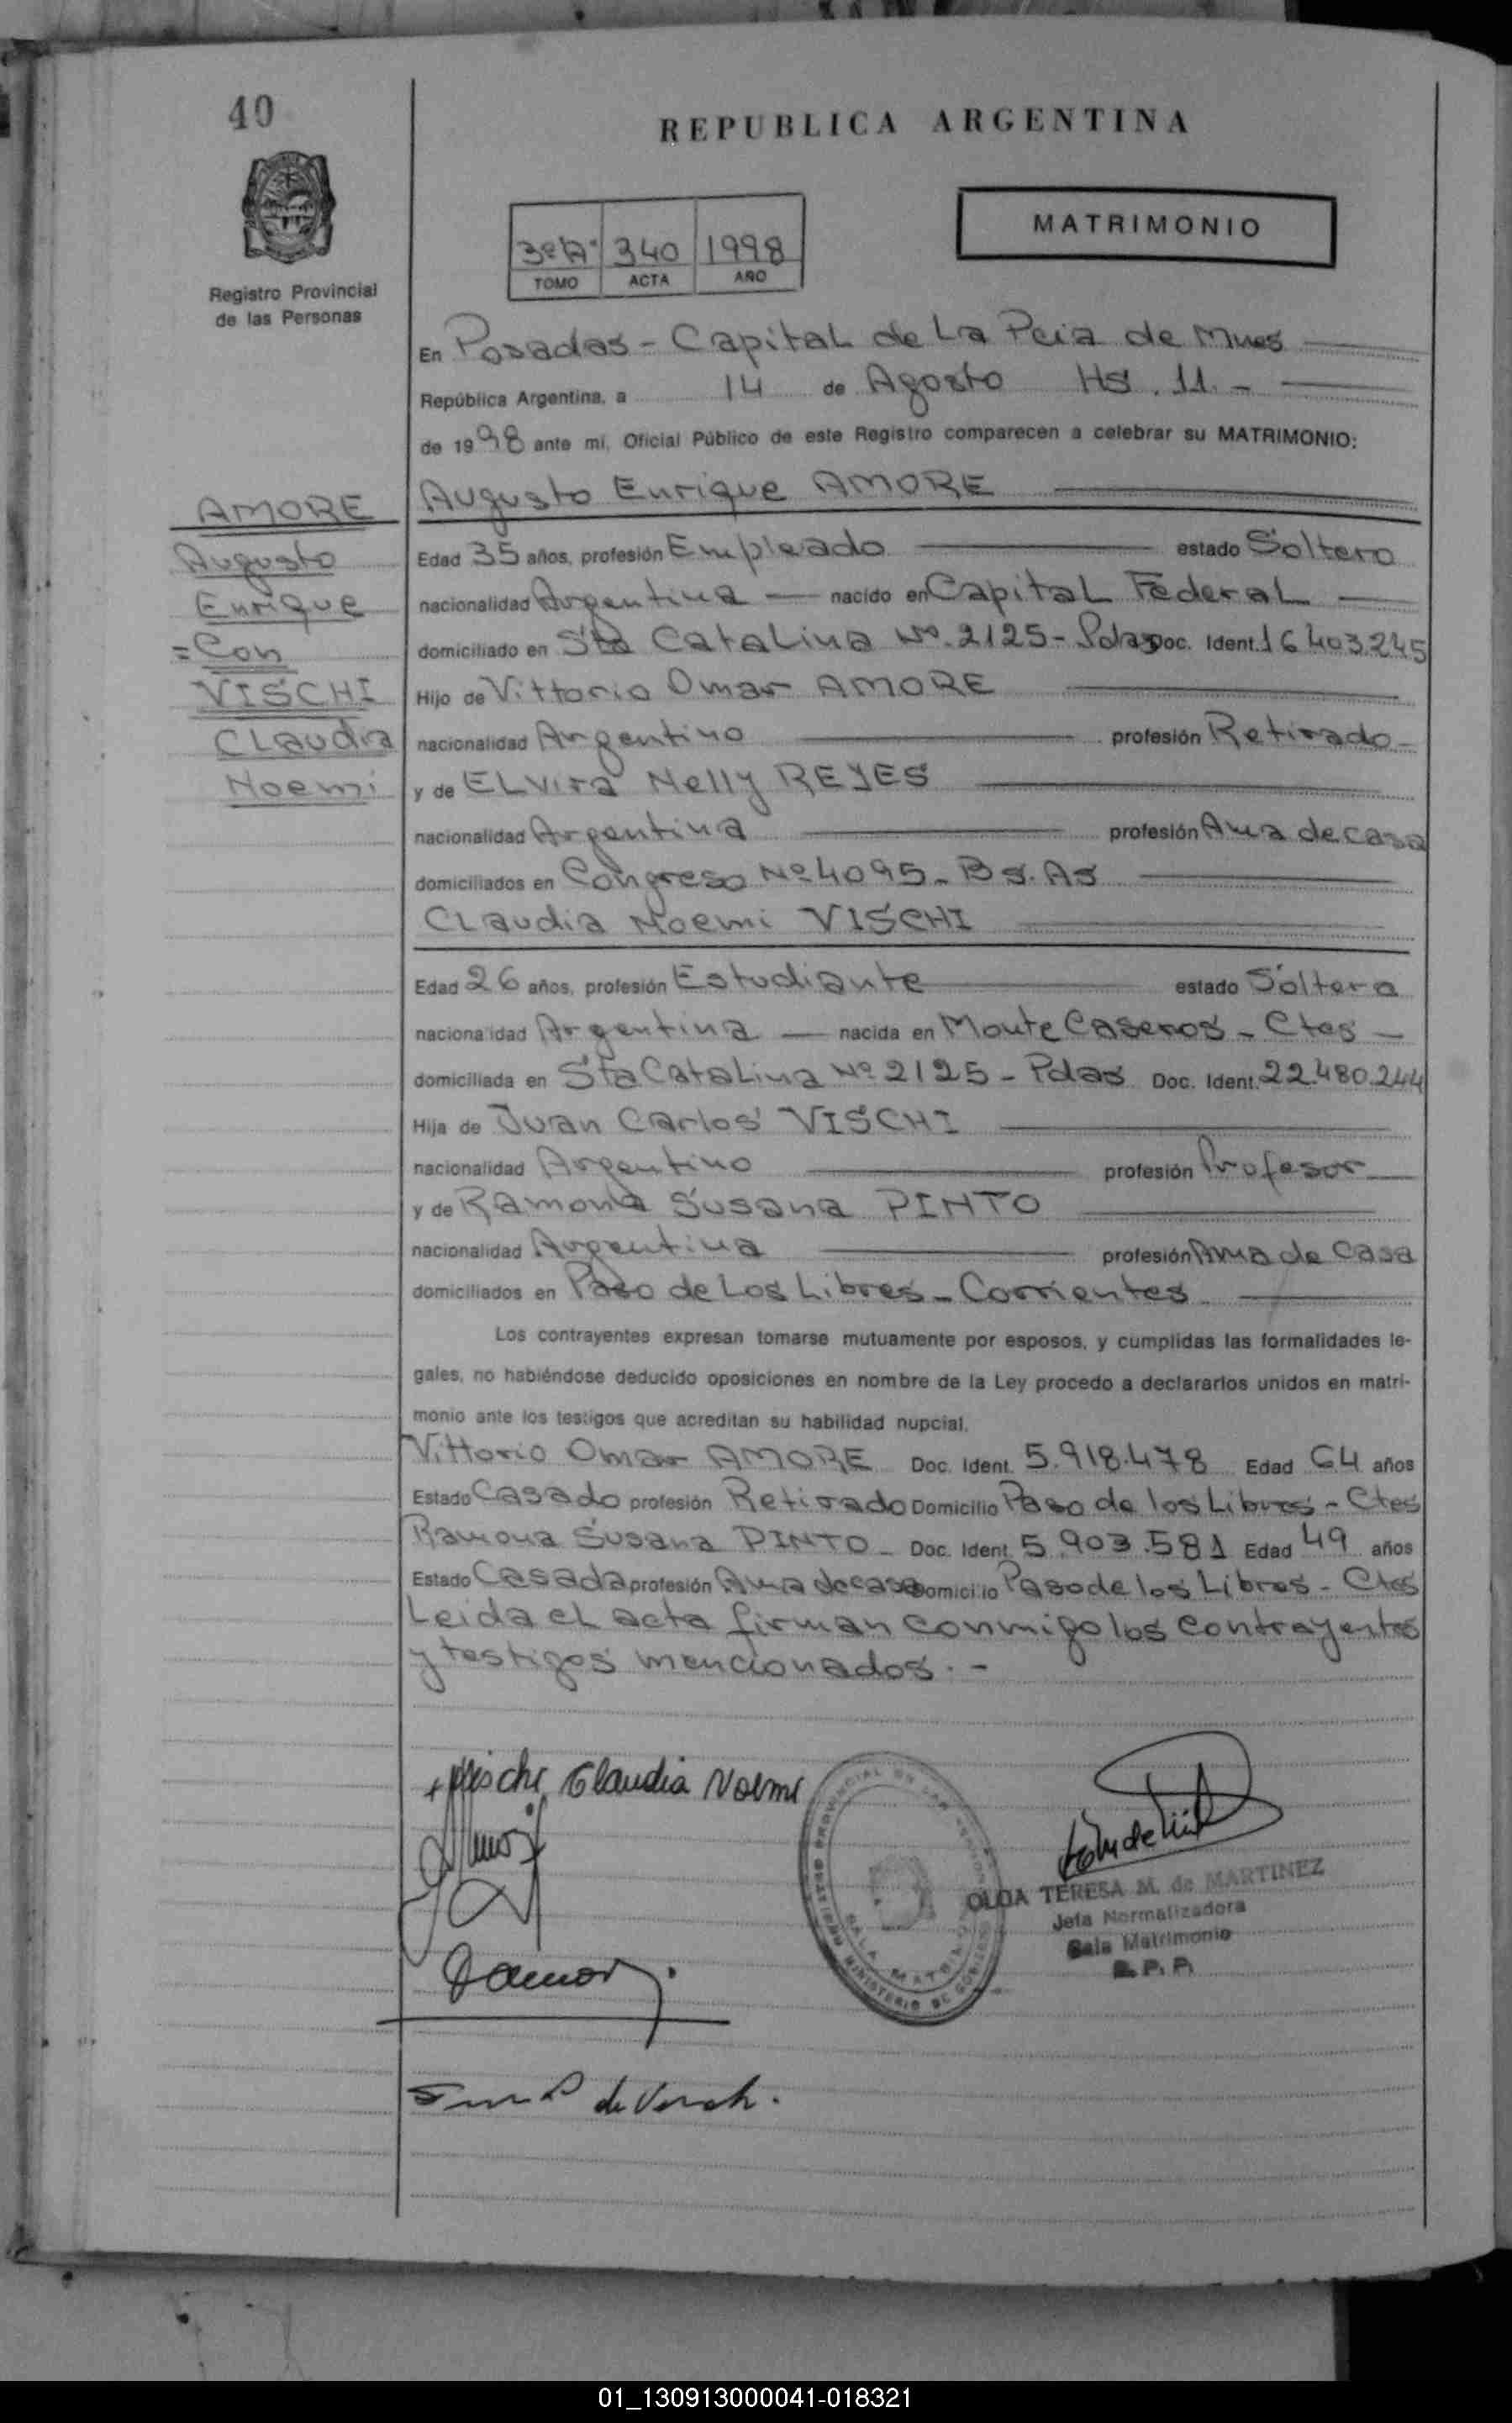 40
REPUBLICA ARGENTINA
MATRIMONIO
3º "A" 340 1998
TOMO ACTA AÑO
Registro Provincial
de las Personas
En Posadas - Capital de La Pcia de Mnes
República Argentina, a 14 de Agosto Hs. 11. -
de 1998 ante mí, Oficial Público de este Registro comparecen a celebrar su MATRIMONIO:
AMORE
Augusto
Enrique
= Con
VISCHI
Claudia
Noemi
Augusto Enrique AMORE
Edad 35 años, profesión Empleado estado Soltero
nacionalidad Argentina — nacido en Capital Federal
domiciliado en Sta Catalina Nº. 2125 - Pdas Doc. Ident. 16.403.245
Hijo de Vittorio Omar AMORE
nacionalidad Argentino profesión Retirado
y de Elvira Nelly REYES
nacionalidad Argentina profesión Ama de casa
domiciliados en Congreso Nº 4095 - Bs. As
Claudia Noemi VISCHI
Edad 26 años, profesión Estudiante estado Soltera
nacionalidad Argentina — nacida en Monte Caseros - Ctes -
domiciliada en Sta Catalina Nº 2125 - Pdas Doc. Ident. 22.480.244
Hija de Juan Carlos VISCHI
nacionalidad Argentino profesión Profesor
y de Ramona Susana PINTO
nacionalidad Argentina profesión Ama de Casa
domiciliados en Paso de Los Libres - Corrientes
Los contrayentes expresan tomarse mutuamente por esposos, y cumplidas las formalidades le-
gales, no habiéndose deducido oposiciones en nombre de la Ley procedo a declararlos unidos en matri-
monio ante los testigos que acreditan su habilidad nupcial.
Vittorio Omar AMORE Doc. Ident. 5.918.478 Edad 64 años
Estado Casado profesión Retirado Domicilio Paso de los Libres - Ctes
Ramona Susana PINTO - Doc. Ident. 5.903.581 Edad 49 años
Estado Casada profesión Ama de casa Domicilio Paso de los Libres - Ctes
Leida el acta firman conmigo los contrayentes
y testigos mencionados. -
Vischi Claudia Noemi
REGISTRO PROVINCIAL DE LAS PERSONAS
SALA MATRIMONIO
MINISTERIO DE GOBIERNO
OLGA TERESA M. de MARTINEZ
Jefa Normalizadora
Sala Matrimonio
R. P. P.
de Vischi.
01_130913000041-018321